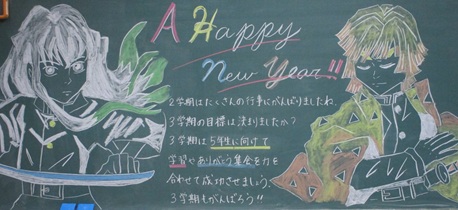 A Happy
New Year!!
2学期はたくさんの行事にがんばりましたね。
3学期の目標は決まりましたか?
3学期は5年生に向けて
学習やありがとう集会を力を
合わせて成功させましょう。
3学期もがんばろう!!